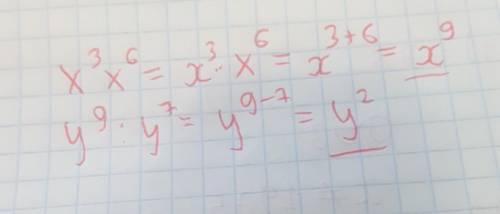 x³x⁶ = x³·x⁶ = x³⁺⁶ = x⁹
y⁹:y⁷ = y⁹⁻⁷ = y²